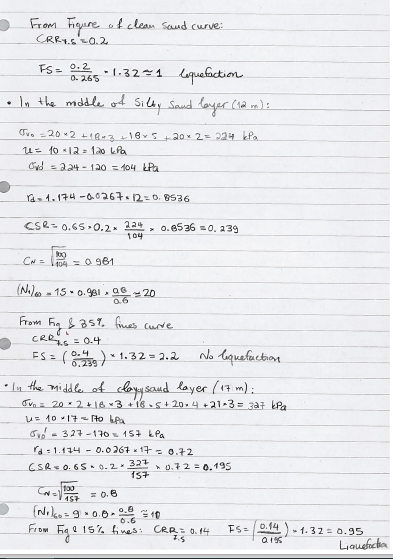 From Figure of clean sand curve:
CRR7.5 = 0.2
FS = 0.2/0.265 * 1.32 ≃ 1 liquefaction
• In the middle of Silty Sand layer (12 m):
σvo = 20×2 + 18×3 + 18×5 + 20×2 = 224 kPa
u = 10×12 = 120 kPa
= 224 - 120 = 104 kPa
rd = 1.174 - 0.0267×12 = 0.8536
CSR = 0.65×0.2× 224/104 × 0.8536 = 0.239
CN = √100/104 = 0.981
(N1)60 = 15 × 0.981 × 0.8/0.6 ≃ 20
From Fig & 35% fines curve
CRR7.5 = 0.4
FS = (0.4/0.239) * 1.32 = 2.2 No liquefaction
• In the middle of clayey sand layer (17 m):
σvo = 20×2 + 18×3 + 18×5 + 20×4 + 21×3 = 327 kPa
u = 10×17 = 170 kPa
σvo' = 327 - 170 = 157 kPa
rd = 1.174 - 0.0267×17 = 0.72
CSR = 0.65×0.2× 327/157 × 0.72 = 0.195
CN = √100/157 = 0.8
(N1)60 = 9 × 0.8 × 0.8/0.6 ≃ 10
From Fig & 15% fines: CRR7.5 = 0.14 FS = (0.14/0.195) * 1.32 = 0.95
Liquefaction